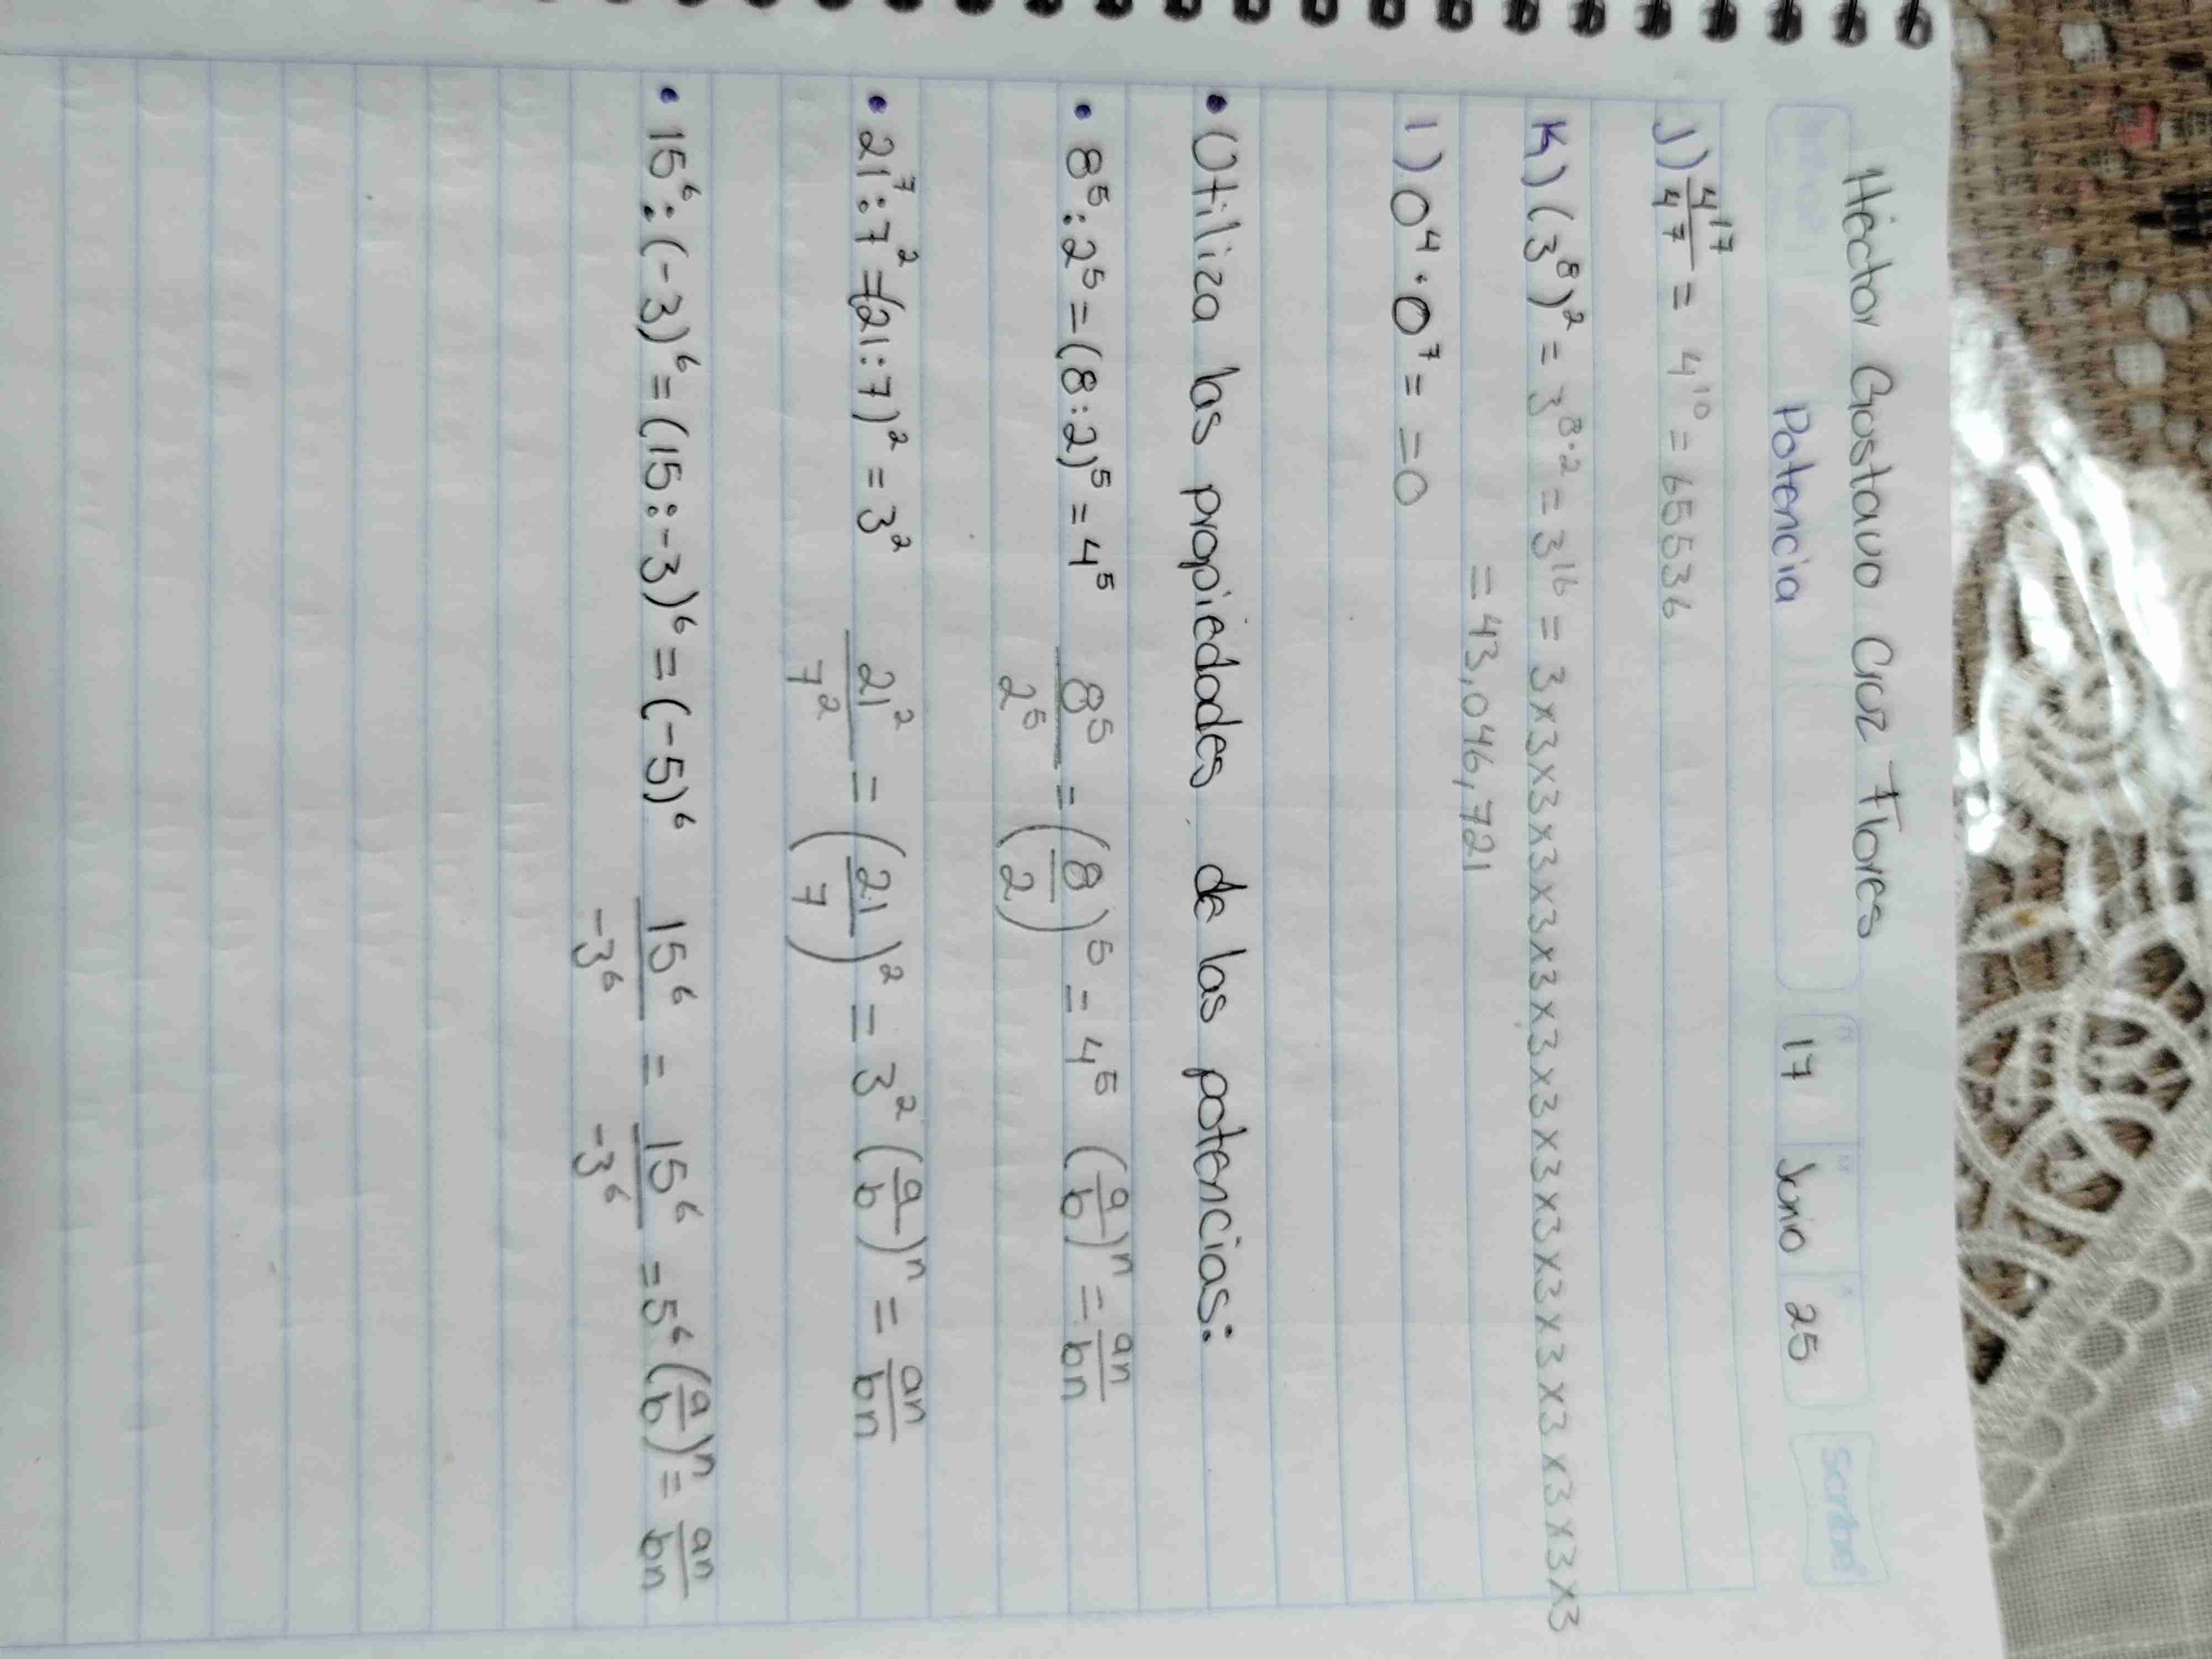 Héctor Gustavo Cruz Flores
Potencia 17 Junio 25 Scribe
J) 4¹⁷/4⁷ = 4¹⁰ = 65536
K) (3⁸)² = 3⁸·² = 3¹⁶ = 3x3x3x3x3x3x3x3x3x3x3x3x3x3x3x3
= 43,046,721
l) 0⁴ · 0⁷ = = 0
• Utiliza las propiedades de las potencias:
• 8⁵:2⁵ = (8:2)⁵ = 4⁵ 8⁵/2⁵ = (8/2)⁵ = 4⁵ (a/b)ⁿ = an/bn
• 21⁷:7² = (21:7)² = 3² 21²/7² = (21/7)² = 3² (a/b)ⁿ = an/bn
• 15⁶:(-3)⁶ = (15:-3)⁶ = (-5)⁶ 15⁶/-3⁶ = 15⁶/-3⁶ = 5⁶ (a/b)ⁿ = an/bn